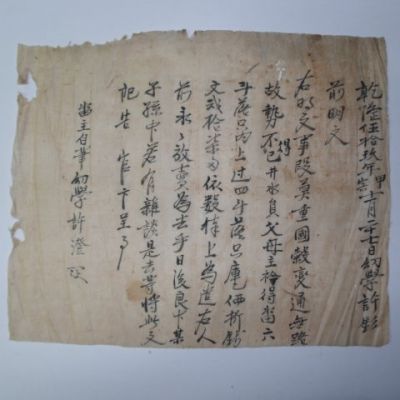 乾隆伍拾玖年甲寅十一月二十七日幼學許彩
前明文
右明文事段莫重國穀變通無路
故勢不得已 父母主 畓六
斗落只內上邊四斗落只庫價折錢
文貳拾柒兩依數捧上為遣右人
前永永放賣為去乎日後良中某
子孫中若有雜談是去等將此文
記告官卞呈事
畓主自筆幼學許澄